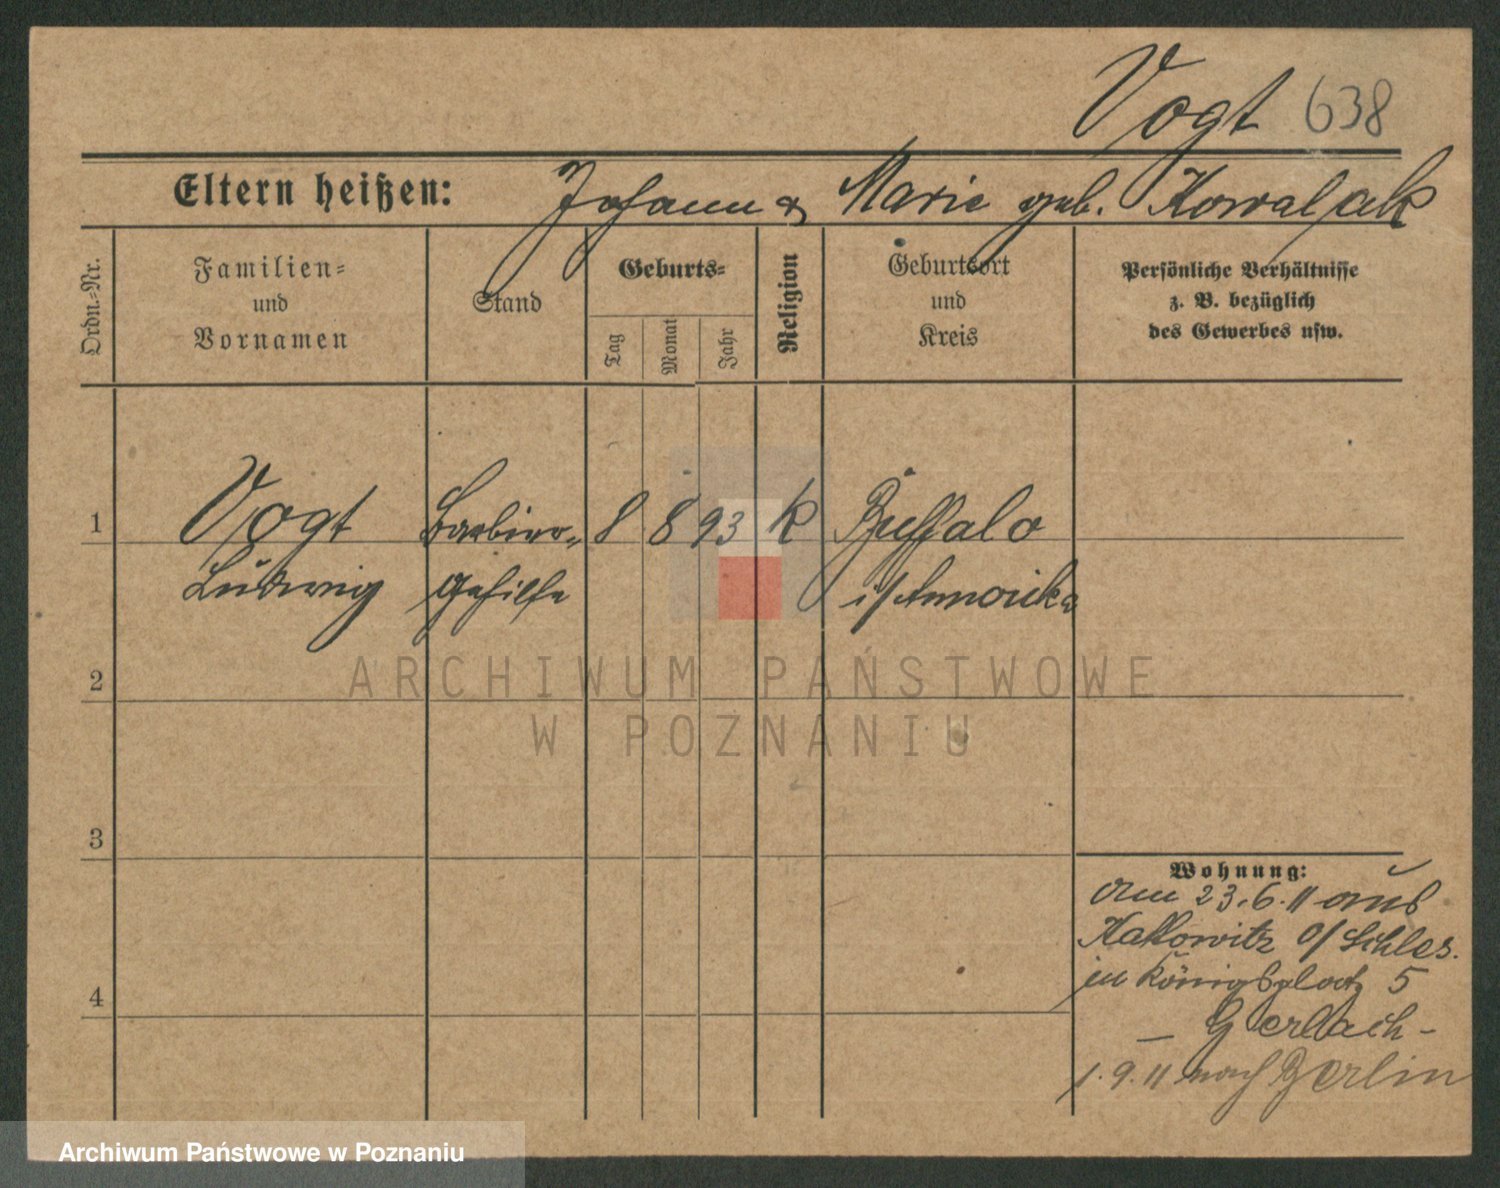 Vogt 638
Eltern heißen: Johann & Marie geb. Kowalzak
Ordn.-Nr.
Familien-
und
Vornamen
Stand
Geburts-
Tag
Monat
Jahr
Religion
Geburtsort
und
Kreis
Persönliche Verhältnisse
z. B. bezüglich
des Gewerbes usw.
1 Vogt Barbier- 8 8 93 k Buffalo
Ludwig Gehilfe i/Amerika
2
ARCHIWUM PAŃSTWOWE
W POZNANIU
3
Wohnung:
am 23.6.11 aus
Kattowitz O/Schles.
in Königsplatz 5
4
– Gerlach –
1.9.11 nach Berlin
Archiwum Państwowe w Poznaniu